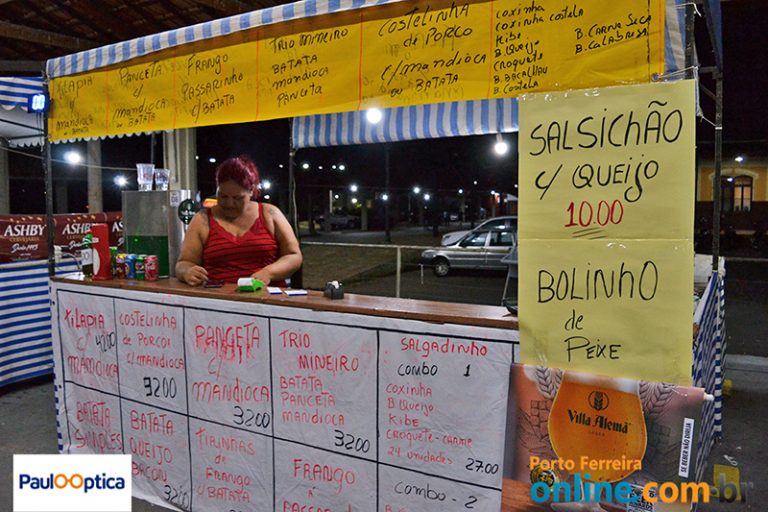 TILÁPIA
C/
MANDIOCA
PANCETA
C/ MANDIOCA
OU BATATA
FRANGO
PASSARINHO
C/ BATATA
TRIO MINEIRO
BATATA
MANDIOCA
PANCETA
COSTELINHA
de PORCO
C/ MANDIOCA
OU BATATA
COXINHA
COXINHA COSTELA
KIBE
B. QUEIJO
CROQUETE
B. BACALHAU
B. COSTELA
B. CARNE SECA
B. CALABRESA
SALSICHÃO
C/ QUEIJO
10.00
BOLINHO
de
PEIXE
ASHBY
ASHBY
TILÁPIA
C/ 42,00
MANDIOCA
COSTELINHA
DE PORCO
C/ MANDIOCA
PANCETA
C/
MANDIOCA
32,00
TRIO
MINEIRO
BATATA
PANCETA
MANDIOCA
32,00
SALGADINHO
COMBO 1
COXINHA
B QUEIJO
KIBE
CROQUETE - CARNE
24 UNIDADES
27,00
BATATA
SIMPLES
BATATA
QUEIJO
BACON
TIRINHAS
de
FRANGO
C/ BATATA
FRANGO
À
COMBO - 2
Villa Alemã
SE BEBER NÃO DIRIJA
PauloOptica
Porto Ferreira
online.com.br